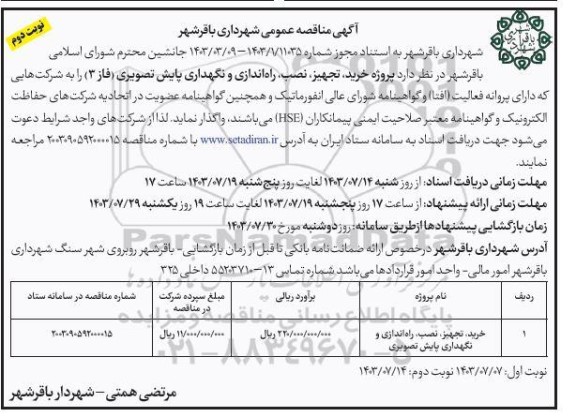 آگهی مناقصه عمومی شهرداری باقرشهر
نوبت دوم
شهرداری باقرشهر به استناد مجوز شماره ۱۴۰۳/۱/۱۱۰۳۵-۱۴۰۳/۰۳/۰۹ جانشین محترم شورای اسلامی
باقرشهر در نظر دارد پروژه خرید، تجهیز، نصب، راه‌اندازی و نگهداری پایش تصویری (فاز ۳) را به شرکت‌هایی
که دارای پروانه فعالیت (افتا) و گواهینامه شورای عالی انفورماتیک و همچنین گواهینامه عضویت در اتحادیه شرکت‌های حفاظت
الکترونیک و گواهینامه معتبر صلاحیت ایمنی پیمانکاران (HSE) می‌باشند، واگذار نماید. لذا از شرکت‌های واجد شرایط دعوت
می‌شود جهت دریافت اسناد به سامانه ستاد ایران به آدرس www.setadiran.ir با شماره مناقصه ۲۰۰۳۰۹۰۵۹۲۰۰۰۰۱۵ مراجعه
نمایند.
مهلت زمانی دریافت اسناد: از روز شنبه ۱۴۰۳/۰۷/۱۴ لغایت روز پنج‌شنبه ۱۴۰۳/۰۷/۱۹ ساعت ۱۷
مهلت زمانی ارائه پیشنهاد: از ساعت ۱۷ روز پنجشنبه ۱۴۰۳/۰۷/۱۹ لغایت ساعت ۱۹ روز یکشنبه ۱۴۰۳/۰۷/۲۹
زمان بازگشایی پیشنهادها از طریق سامانه: روز دوشنبه مورخ ۱۴۰۳/۰۷/۳۰
آدرس شهرداری باقرشهر درخصوص ارائه ضمانت‌نامه بانکی تا قبل از زمان بازگشایی- باقرشهر روبروی شهر سنگ شهرداری
باقرشهر امور مالی- واحد امور قراردادها می‌باشد شماره تماس ۱۳-۵۵۲۰۳۷۱۰ داخلی ۳۲۵
ردیف نام پروژه برآورد ریالی مبلغ سپرده شرکت در مناقصه شماره مناقصه در سامانه ستاد
۱ خرید، تجهیز، نصب، راه‌اندازی و نگهداری پایش تصویری ۲۲۰/۰۰۰/۰۰۰/۰۰۰ ریال ۱۱/۰۰۰/۰۰۰/۰۰۰ ریال ۲۰۰۳۰۹۰۵۹۲۰۰۰۰۱۵
پایگاه اطلاع رسانی مناقصه و مزایده
۰۲۱-۸۸۳۴۹۶۷۰-۵
نوبت اول: ۱۴۰۳/۰۷/۰۷ نوبت دوم: ۱۴۰۳/۰۷/۱۴
مرتضی همتی - شهردار باقرشهر